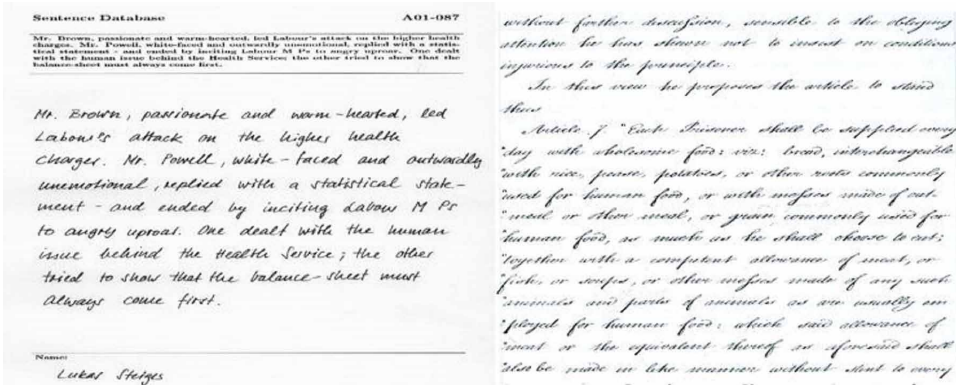 Sentence Database A01-087
Mr. Brown, passionate and warm-hearted, led Labour's attack on the higher health
charges. Mr. Powell, white-faced and outwardly unemotional, replied with a statis-
tical statement - and ended by inciting Labour M Ps to angry uproar. One dealt
with the human issue behind the Health Service; the other tried to show that the
balance-sheet must always come first.
Mr. Brown, passionate and warm-hearted, led
Labour's attack on the higher health
Charges. Mr. Powell, white-faced and outwardly
unemotional, replied with a statistical state-
ment - and ended by inciting Labour M Ps
to angry uproar. One dealt with the human
issue behind the Health Service; the other
tried to show that the balance-sheet must
always come first.
Name:
Lukas Steiges
without further discussion, sensible to the obliging
attention he has shewn not to insist on conditions
injurious to the principle.
In this view he proposes the article to stand
thus
Article 7. "Each Prisoner shall be supplied every
"day with wholesome food: viz: bread, interchangeable
"with rice, pease, potatoes, or other roots commonly
"used for human food, or with messes made of oat-
"meal or other meal, or grain commonly used for
"human food, as much as he shall choose to eat;
"together with a competent allowance of meat, or
"fish, or soups, or other messes made of any such
"animals and parts of animals as are usually em
"ployed for human food: which said allowance of
"meat or the equivalent thereof as aforesaid shall
"also be made in like manner without stint to every